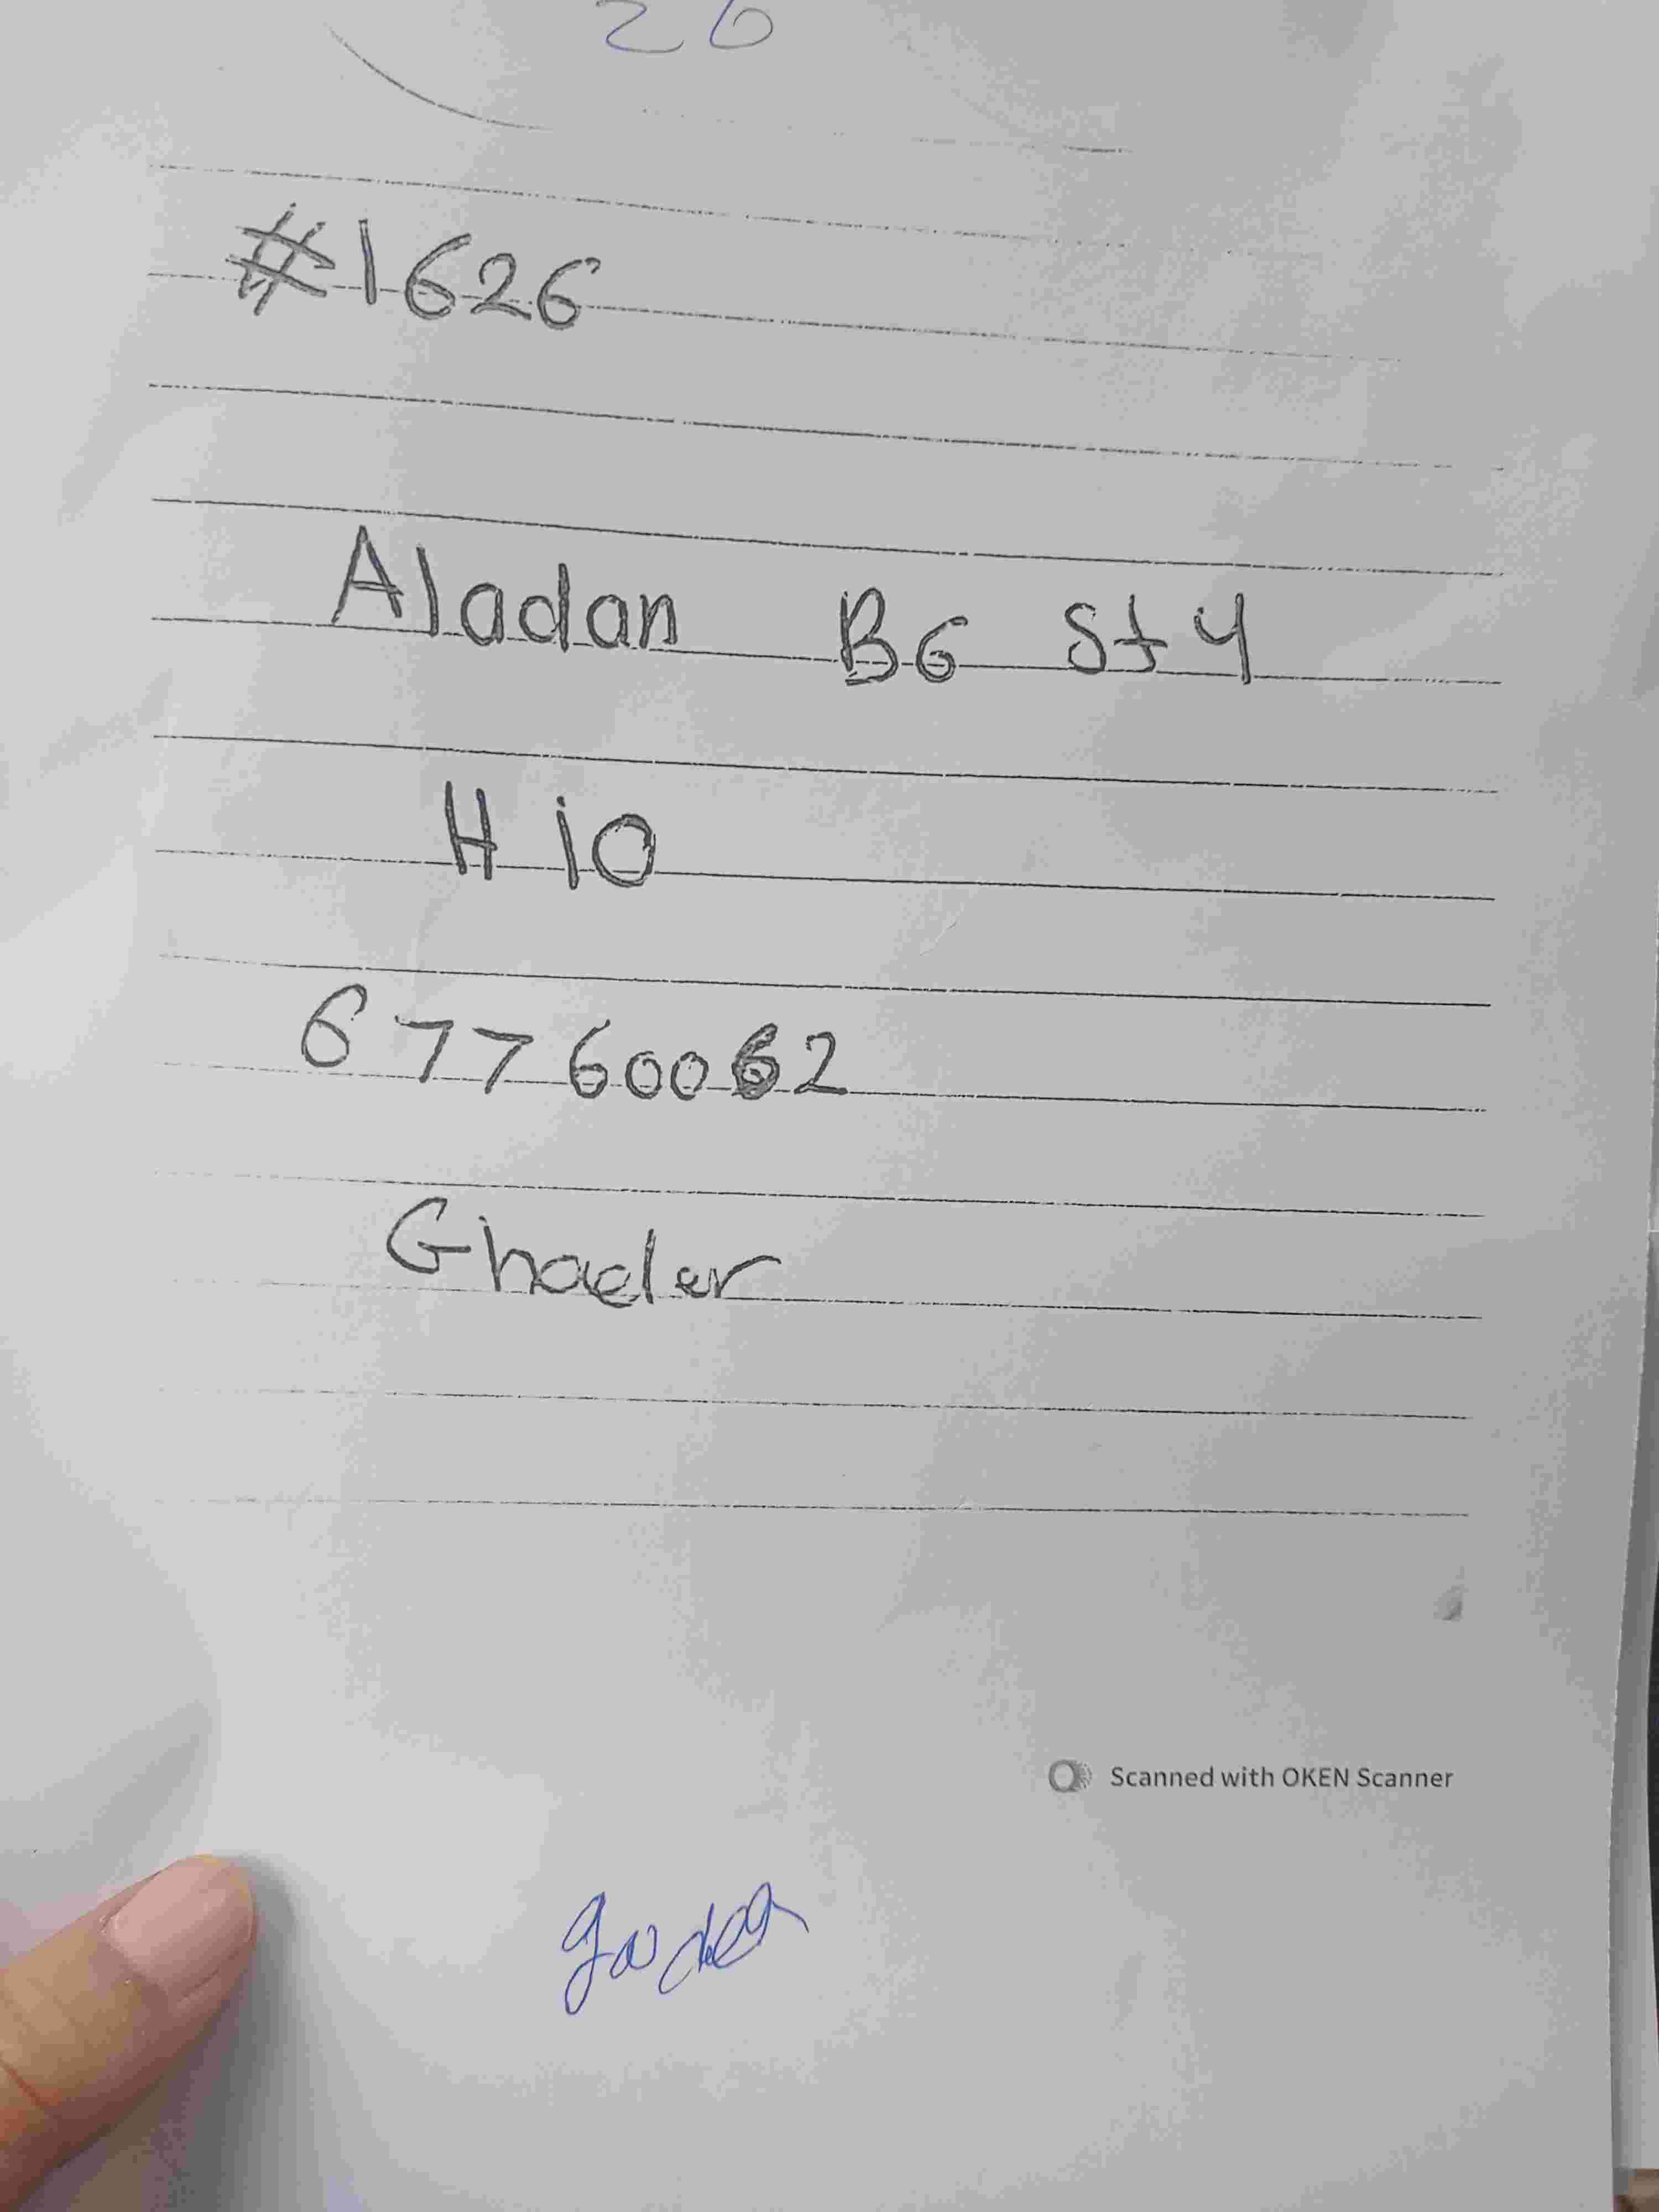 26
#1626
Aladan B6 St 4
H 10
67760062
Ghader
Scanned with OKEN Scanner